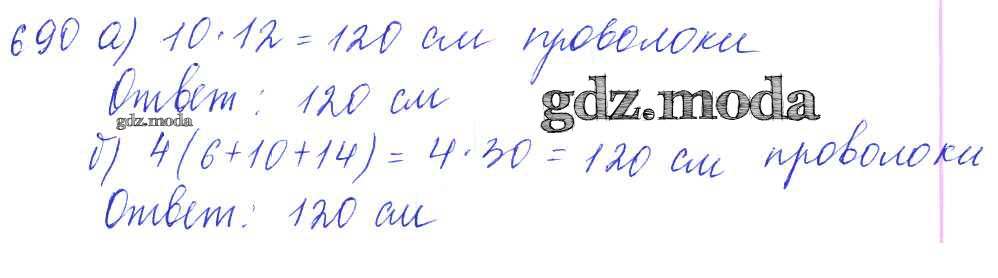 690 а) 10·12=120 см проволоки
Ответ: 120 см
gdz.moda
gdz.moda
б) 4(6+10+14)=4·30=120 см проволоки
Ответ: 120 см